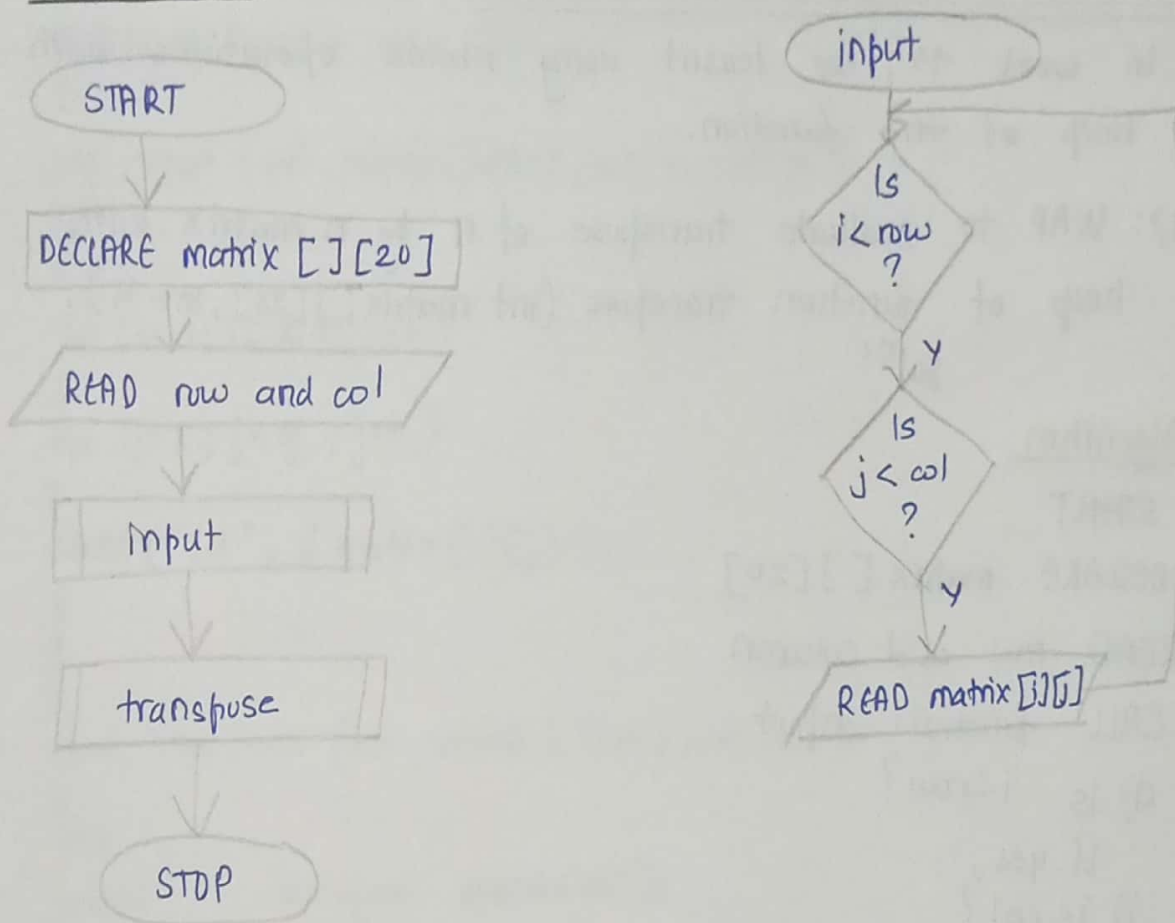 START
DECLARE matrix [ ] [20]
READ row and col
input
transpose
STOP
input
Is
i < row
?
Y
Is
j < col
?
Y
READ matrix [i][j]